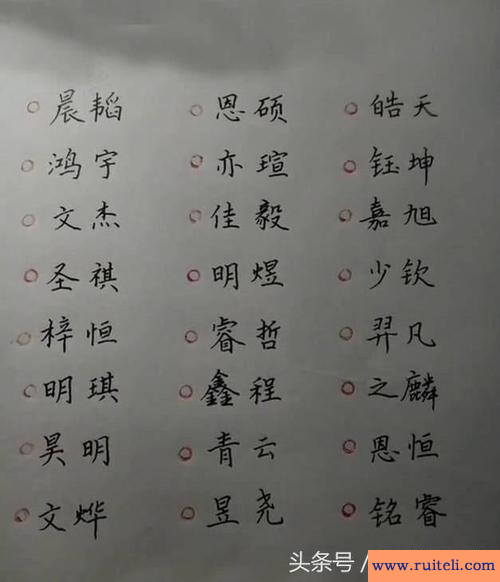 晨韬 恩硕 皓天
鸿宇 亦瑄 钰坤
文杰 佳毅 嘉旭
圣祺 明煜 少钦
梓恒 睿哲 羿凡
明琪 鑫程 之麟
昊明 青云 恩恒
文烨 昱尧 铭睿
头条号 /
www.ruiteli.com